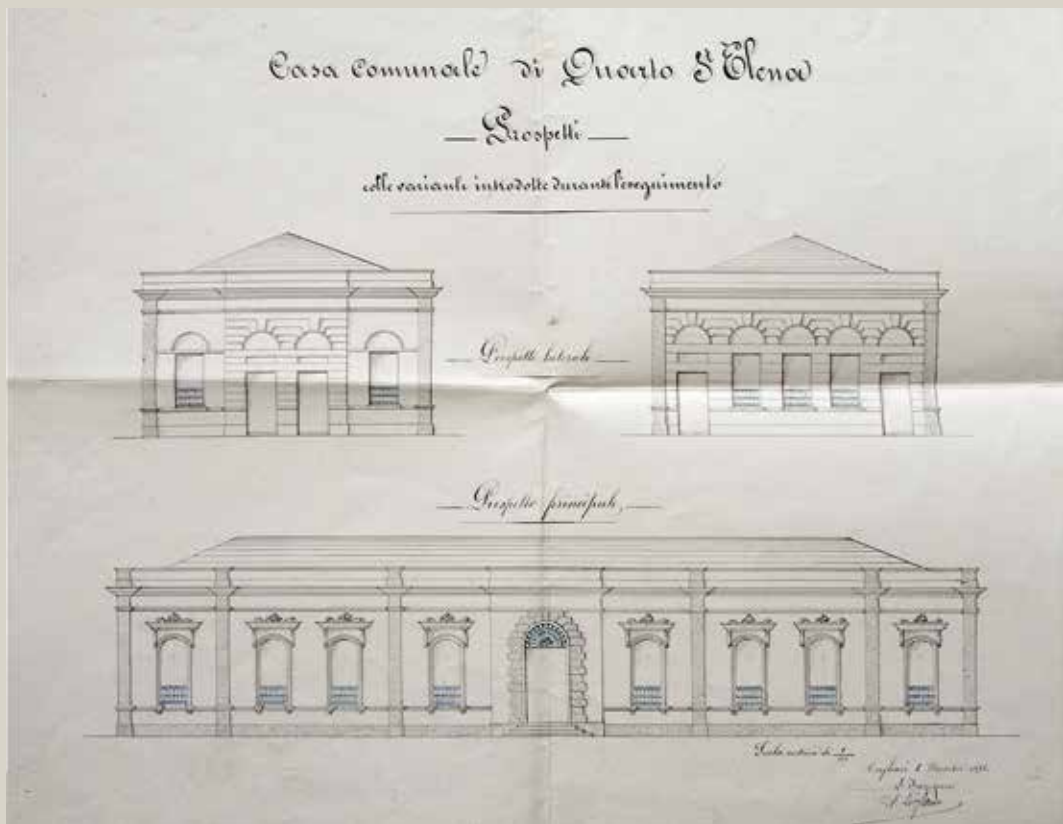 Casa Comunale di Quarto St Elena
Prospetti
colle varianti introdotte durante l'eseguimento
Prospetti laterali
Prospetto principale
Scala metrica di
Cagliari